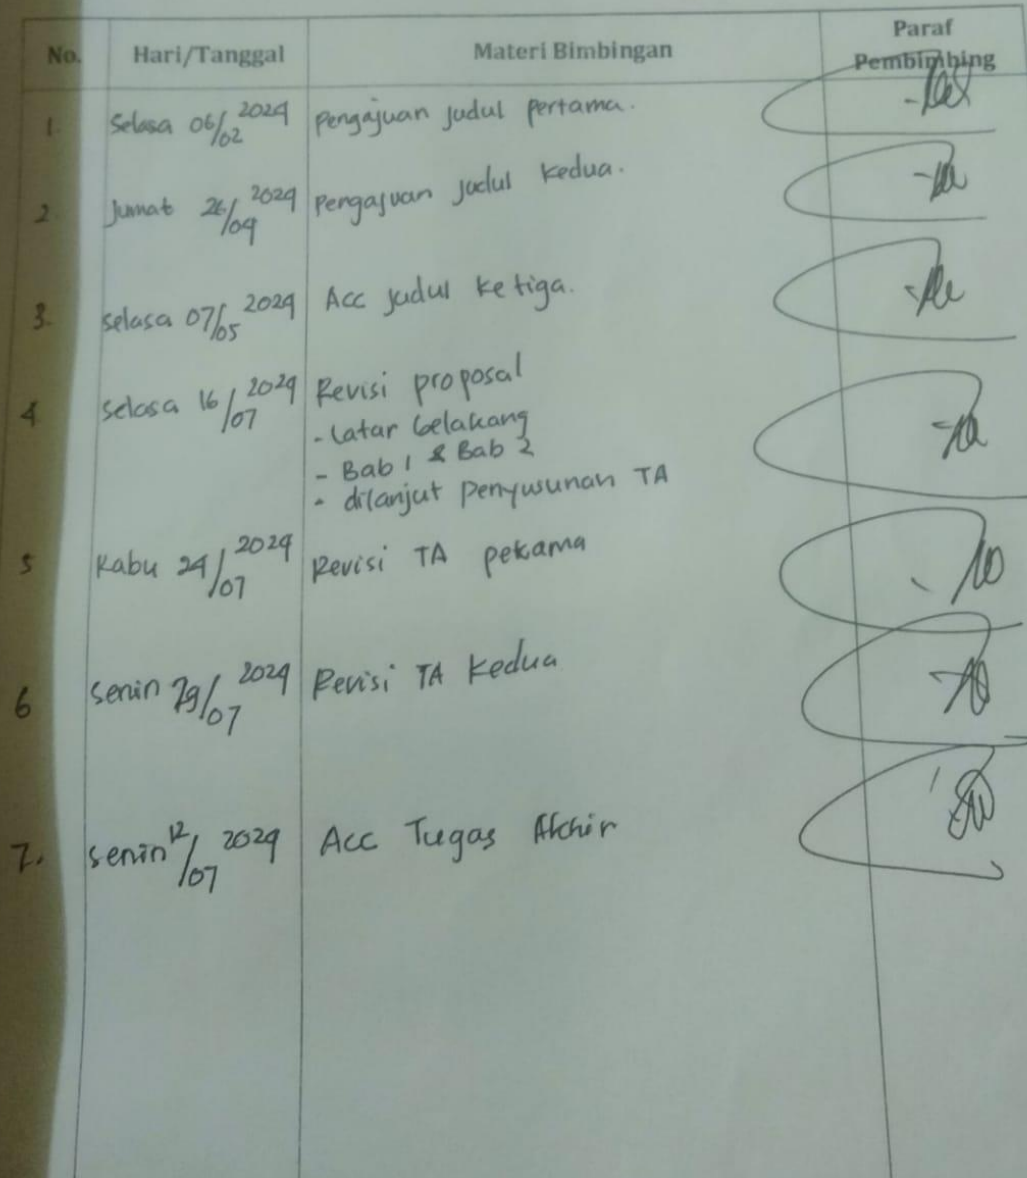 No. Hari/Tanggal Materi Bimbingan Paraf Pembimbing
1. Selasa 06/02 2024 Pengajuan judul pertama.
2 Jumat 26/04 2024 Pengajuan judul kedua.
3. Selasa 07/05 2024 Acc judul ketiga.
4 Selasa 16/07 2024 Revisi proposal
- Latar belakang
- Bab 1 & Bab 2
- dilanjut Penyusunan TA
5 Rabu 24/07 2024 Revisi TA pertama
6 Senin 29/07 2024 Revisi TA Kedua
7. Senin 12/07 2024 Acc Tugas Akhir